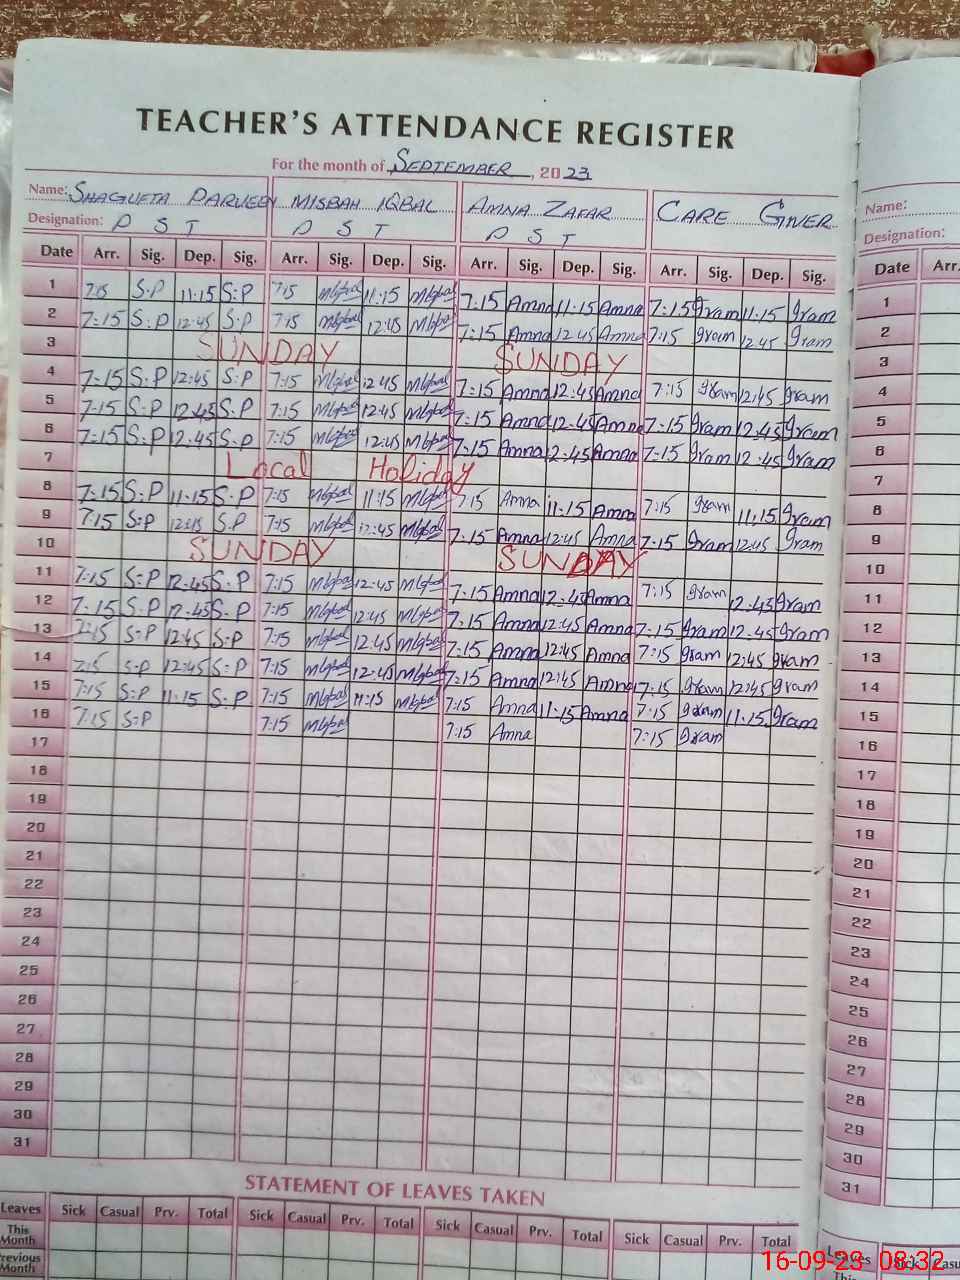 TEACHER'S ATTENDANCE REGISTER
For the month of SEPTEMBER, 2023
Name: SHAGUFTA PARVEEN MISBAH IQBAL AMNA ZAFAR CARE GIVER
Designation: P S T P S T P S T
Date Arr. Sig. Dep. Sig. Arr. Sig. Dep. Sig. Arr. Sig. Dep. Sig. Arr. Sig. Dep. Sig.
1 7:15 S.P 11:15 S.P 7:15 MIqbal 11:15 MIqbal 7:15 Amna 11:15 Amna 7:15 Iram 11:15 Iram
2 7:15 S.P 12:45 S.P 7:15 MIqbal 12:45 MIqbal 7:15 Amna 12:45 Amna 7:15 Iram 12:45 Iram
3 SUNDAY SUNDAY
4 7:15 S.P 12:45 S.P 7:15 MIqbal 12:45 MIqbal 7:15 Amna 12:45 Amna 7:15 Iram 12:45 Iram
5 7:15 S.P 12:45 S.P 7:15 MIqbal 12:45 MIqbal 7:15 Amna 12:45 Amna 7:15 Iram 12:45 Iram
6 7:15 S.P 12:45 S.P 7:15 MIqbal 12:45 MIqbal 7:15 Amna 12:45 Amna 7:15 Iram 12:45 Iram
7 Local Holiday
8 7:15 S.P 11:15 S.P 7:15 MIqbal 11:15 MIqbal 7:15 Amna 11:15 Amna 7:15 Iram 11:15 Iram
9 7:15 S.P 12:45 S.P 7:15 MIqbal 12:45 MIqbal 7:15 Amna 12:45 Amna 7:15 Iram 12:45 Iram
10 SUNDAY SUNDAY
11 7:15 S.P 12:45 S.P 7:15 MIqbal 12:45 MIqbal 7:15 Amna 12:45 Amna 7:15 Iram 12:45 Iram
12 7:15 S.P 12:45 S.P 7:15 MIqbal 12:45 MIqbal 7:15 Amna 12:45 Amna 7:15 Iram 12:45 Iram
13 7:15 S.P 12:45 S.P 7:15 MIqbal 12:45 MIqbal 7:15 Amna 12:45 Amna 7:15 Iram 12:45 Iram
14 7:15 S.P 12:45 S.P 7:15 MIqbal 12:45 MIqbal 7:15 Amna 12:45 Amna 7:15 Iram 12:45 Iram
15 7:15 S.P 11:15 S.P 7:15 MIqbal 11:15 MIqbal 7:15 Amna 11:15 Amna 7:15 Iram 11:15 Iram
16 7:15 S.P 7:15 MIqbal 7:15 Amna 7:15 Iram
17
18
19
20
21
22
23
24
25
26
27
28
29
30
31
STATEMENT OF LEAVES TAKEN
Leaves Sick Casual Prv. Total Sick Casual Prv. Total Sick Casual Prv. Total Sick Casual Prv. Total
This Month
Previous Month
Name:
Designation:
Date Arr.
1
2
3
4
5
6
7
8
9
10
11
12
13
14
15
16
17
18
19
20
21
22
23
24
25
26
27
28
29
30
31
Leaves Sick
This
16-09-23 08:32